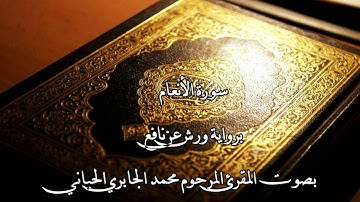 سورة الأنعام
برواية ورش عن نافع
بصوت المقرئ المرحوم محمد الجابري الحياني